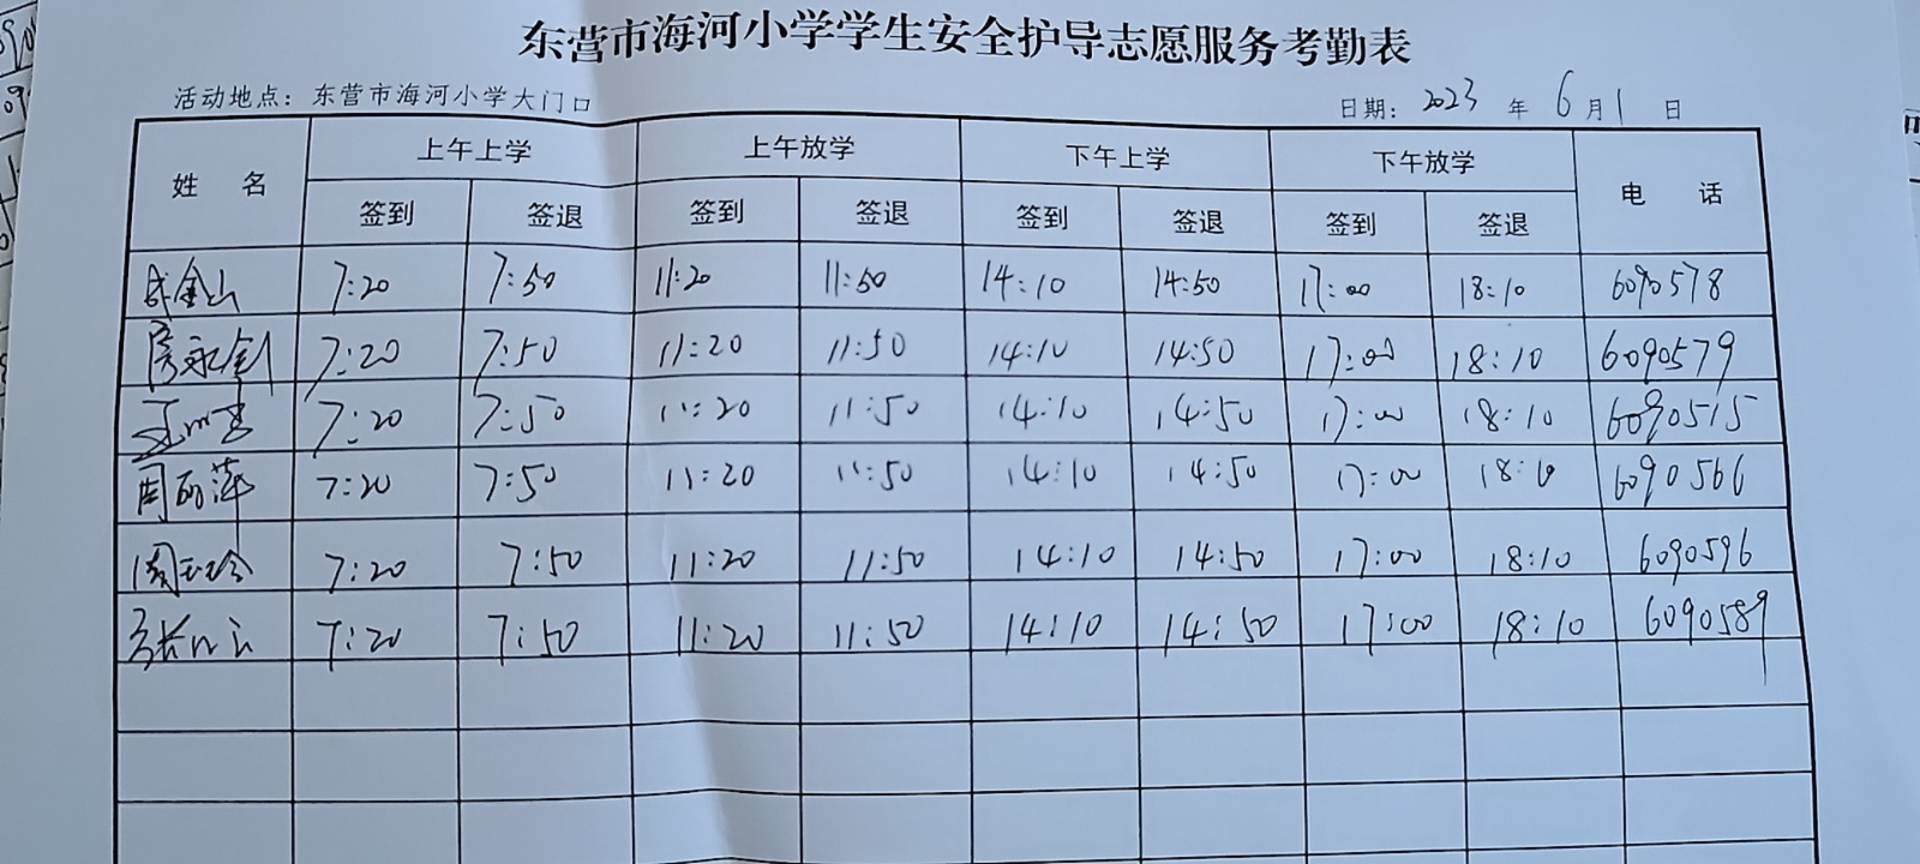 东营市海河小学学生安全护导志愿服务考勤表
活动地点：东营市海河小学大门口 日期：2023 年 6 月 1 日
姓 名 上午上学 上午放学 下午上学 下午放学 电 话
签到 签退 签到 签退 签到 签退 签到 签退
成金山 7:20 7:50 11:20 11:50 14:10 14:50 17:00 18:10 6090578
房永剑 7:20 7:50 11:20 11:50 14:10 14:50 17:00 18:10 6090579
7:20 7:50 11:20 11:50 14:10 14:50 17:00 18:10 6090515
周丽萍 7:20 7:50 11:20 11:50 14:10 14:50 17:00 18:10 6090566
周玉玲 7:20 7:50 11:20 11:50 14:10 14:50 17:00 18:10 6090596
7:20 7:50 11:20 11:50 14:10 14:50 17:00 18:10 6090589